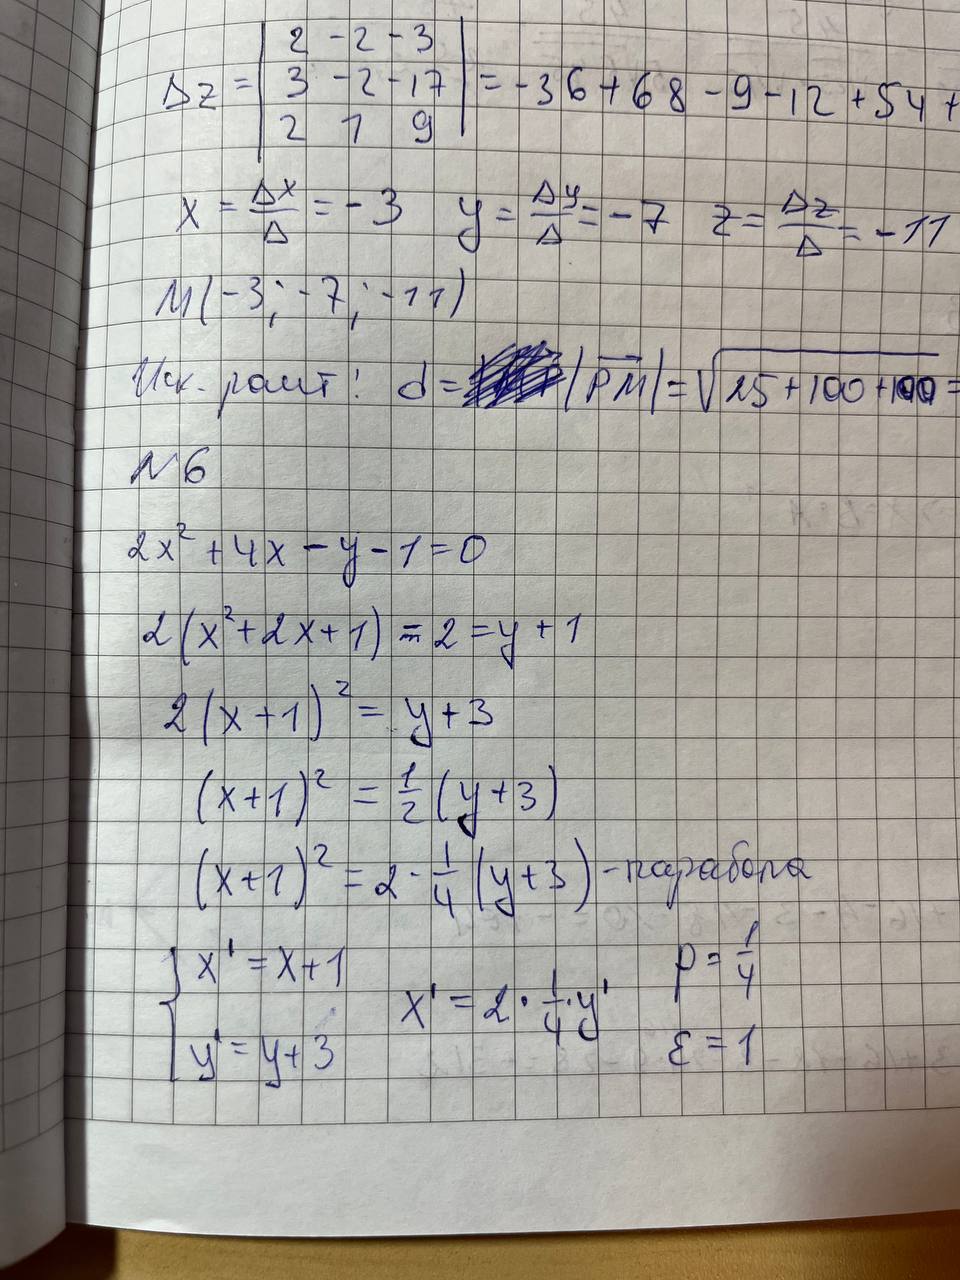 Δz = | 2 -2 -3 |
| 3 -2 -17 | = -36+68-9-12+54+
| 2 1 9 |
x = Δx/Δ = -3 y = Δy/Δ = -7 z = Δz/Δ = -11
M(-3; -7; -11)
Иск. раст: d = |PM| = √25+100+100 =
№6
2x² + 4x - y - 1 = 0
2(x² + 2x + 1) - 2 = y + 1
2(x+1)² = y + 3
(x+1)² = 1/2 (y+3)
(x+1)² = 2 · 1/4 (y+3) - парабола
{ x' = x+1
y' = y+3
x' = 2 · 1/4 · y'
p = 1/4
ε = 1